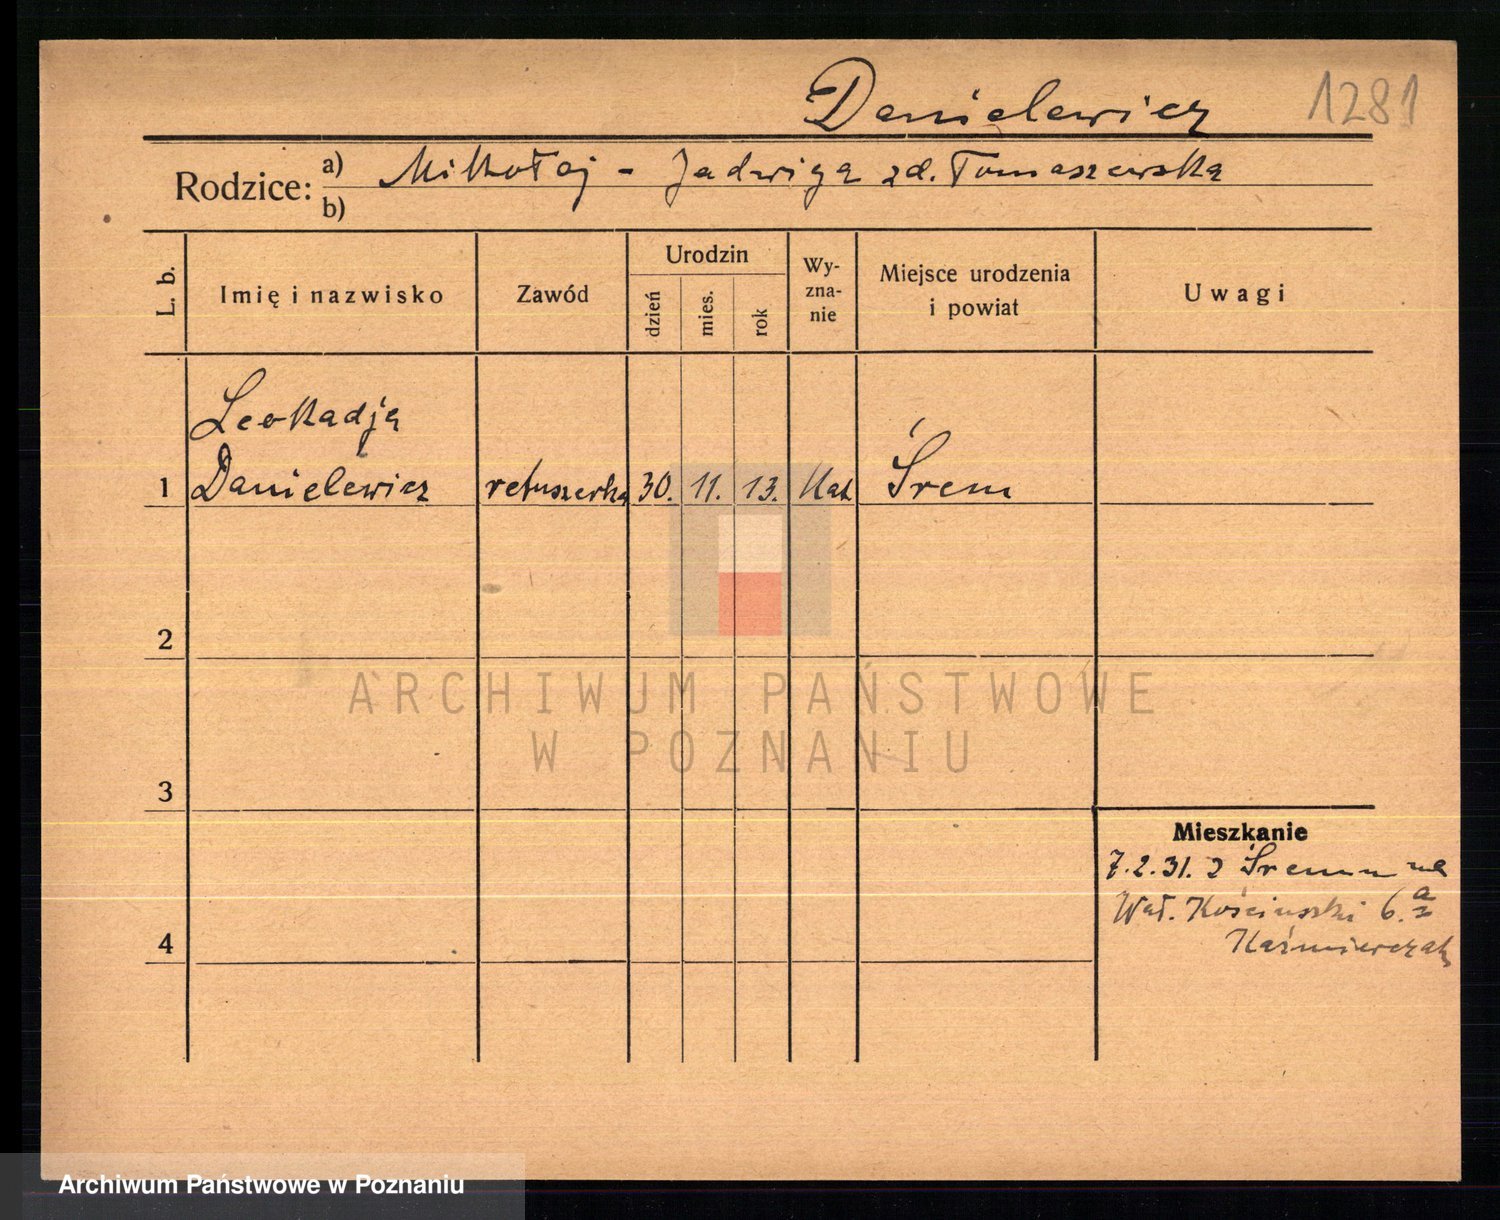 Danielewicz 1281
Rodzice: a) Mikołaj - Jadwiga zd. Tomaszewska
b)
L. b. Imię i nazwisko Zawód Urodzin dzień mies. rok Wyzna-nie Miejsce urodzenia i powiat Uwagi
Leokadja
1 Danielewicz retuszerka 30. 11. 13. Kat. Śrem
2
ARCHIWUM PAŃSTWOWE
W POZNANIU
3
Mieszkanie
7.2.31. z Śremu na
Wał. Kościuszki 6.
4 Kaźmierczak
Archiwum Państwowe w Poznaniu